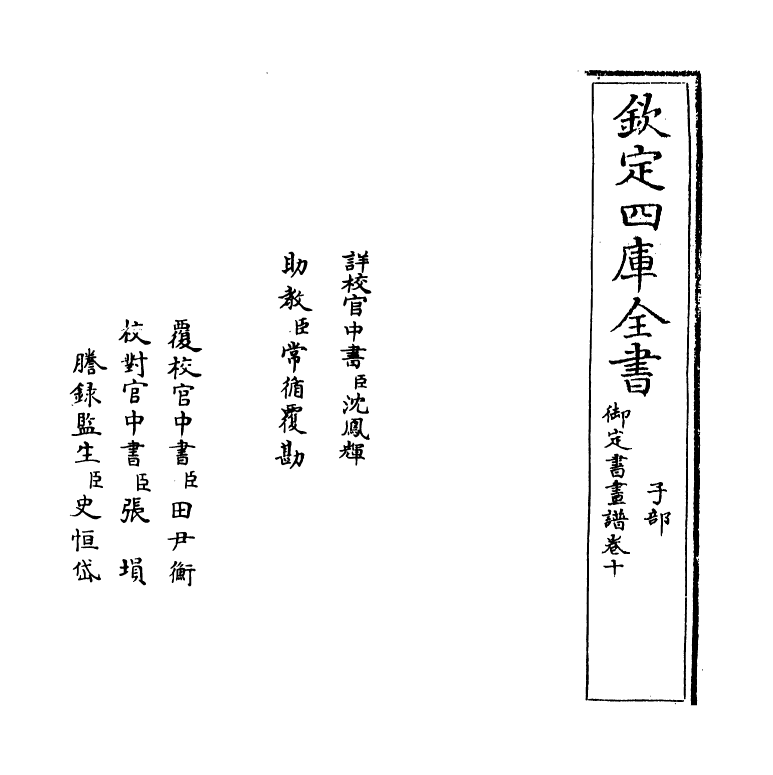 欽定四庫全書
子部
御定書畫譜卷十
詳校官中書臣沈鳳輝
助教臣常循覆勘
覆校官中書臣田尹衡
校對官中書臣張塤
謄録監生臣史恒岱